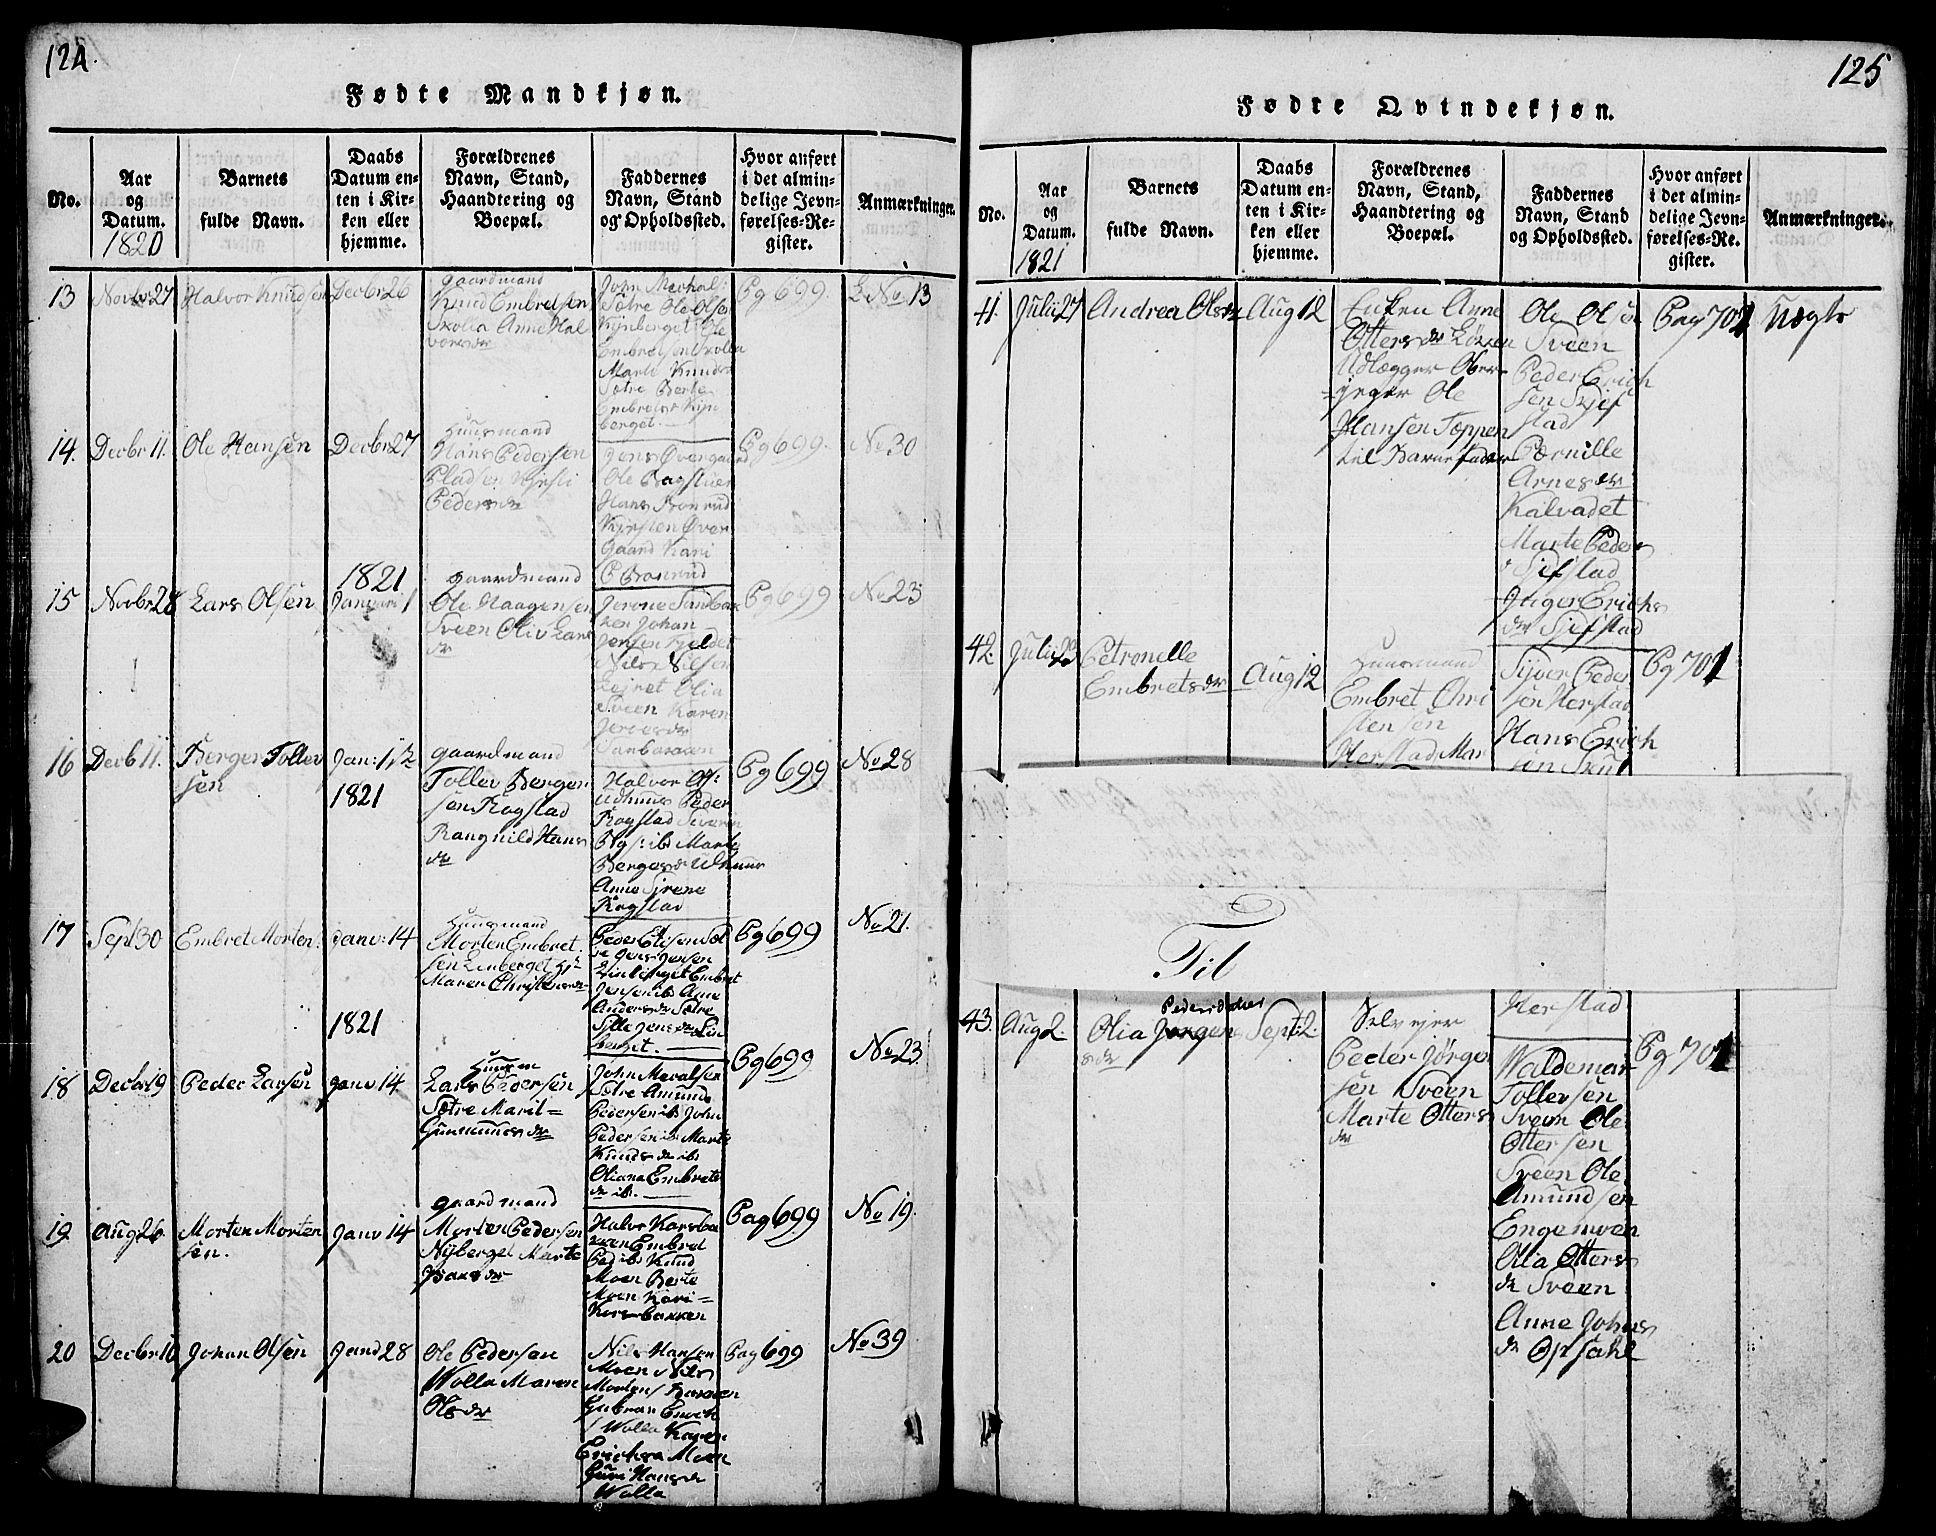 124.
Fødte Mandkjøn.
No.
Aar
og
Datum.
1820
Barnets
fulde Navn.
Daabs
Datum en-
ten i Kir-
ken eller
hjemme.
Forældrenes
Navn, Stand,
Haandtering og
Boepæl.
Faddernes
Navn, Stand
og Opholdssted.
Hvor anført
i det almin-
delige Jevn-
førelses-Re-
gister.
Anmærkninger.
13
Novbr 27
Halvor Knudsen
Decbr 26
gaardmand
Knud Embretsen
Skolla Anne Hal
vorsdr
Sætre Ole Olsen
Embretsen Skolla
Sætre Berte
berget.
Pg 699
No 13
14.
Decbr 11.
Ole Hansen
Decbr 27
Huusmand
Hans Pedersen
Pladsen Kjersti
Pedersdr
Jens Overgaard
Ole Bagstuen
Hans Bonrud
Kjersten Over
gaard Kari
Pg 699.
No 30
15
Novbr 28
Lars Olsen
1821
Januari 1
gaardmand
Ole Haagensen
Sveen Oliv Lars
dr
zen Johan
Jensen Fjeldet
Nils Nilsen
Sveen Karen
Pg 699
No 23
16
Decb 11.
Berger Tollev
sen
Jan: 1
1821
gaardmand
Tollev Berger
sen Rogstad
Rangnild Hans
dr
Halvor Ols:
Udhuus Peder
Rogstad Siveren
Bergersdr Udhuus
Anne Sirene
Rogstad
Pg 699
No 28
17
Sept 30
Embret Morten:
Janv: 14
1821
Huusmand
Morten Embret
sen Linberget
Maren Christensdr
Jensen ib Anne
Andersdr Sætre
Sille Jensdr Lin
berget.
Pg 699
No 21.
18
Decbr 19
Peder Larsen
Janv 14
Huusm
Lars Pedersen
Sætre Marit=
Gunmundsdr
Sætre Amund
Pedersen ib John
Pedersen ib Marte
Knudsdr ib
Oliana Embrets
dr ib.
Pg 699
No 23
19
Aug 26
Morten Morten
sen.
Janv 14
gaardmand
Morten Pedersen
Nyberget Marte
Isaksdr
Halvo Korsba
kken Embret
Ped ib Knud
Moen Berte
Moen Kari=
Korsbakken
Pag 699
No 19.
20
Decbr 10
Johan Olsen
Janv 28
Ole Pedersen
Wolla Maren
Olsdr
Nils Hansen
Moen Nils
Wolla Karen
Erichsdr Moen
Guri Hansdr
Wolla
Pag 699
No 39
125
Fødte Qvindekjøn.
No.
Aar
og
Datum.
1821
Barnets
fulde Navn.
Daabs
Datum en-
ten i Kir-
ken eller
hjemme.
Forældrenes
Navn, Stand,
Haandtering og
Boepæl.
Faddernes
Navn, Stand
og Opholdssted.
Hvor anført
i det almin-
delige Jevn-
førelses-Re-
gister.
Anmærkninger.
41.
Julii 27
Andrea Olsdr
Aug 12
Enken Anne
Ottersdr Løkken
Udlægger Ober-
=jeger Ole
Hansen Toppen
til Barnefader
Ole Olsen
Sveen
Peder Erich
sen Sjif
stad
Pernille
Arnesdr
Kalvadet
Marte Peders
Sjifstad
Inger Erichs
dr Sjifstad
Pag 701
Uægte
42.
Julii
Petronelle
Embretsdr
Aug 12
Huusmand
Embret Chri
stensen
Herstad Mar
Sjver Peder
sen Herstad
Hans Erich
Pg 701
Til
Herstad
43.
Aug 2.
Pedersdatter
Olia Jørgen
sdr
Sept: 2.
Selvejer
Peder Jørgen
sen Sveen
Marte Otters
dr
Waldemar
Tollevsen
Sveen Ole
Ottersen
Sveen Ole
Amundsen
Engemoen
Olia Otters
dr Sveen
Anne Johns
dr Opsahl
Pg 701